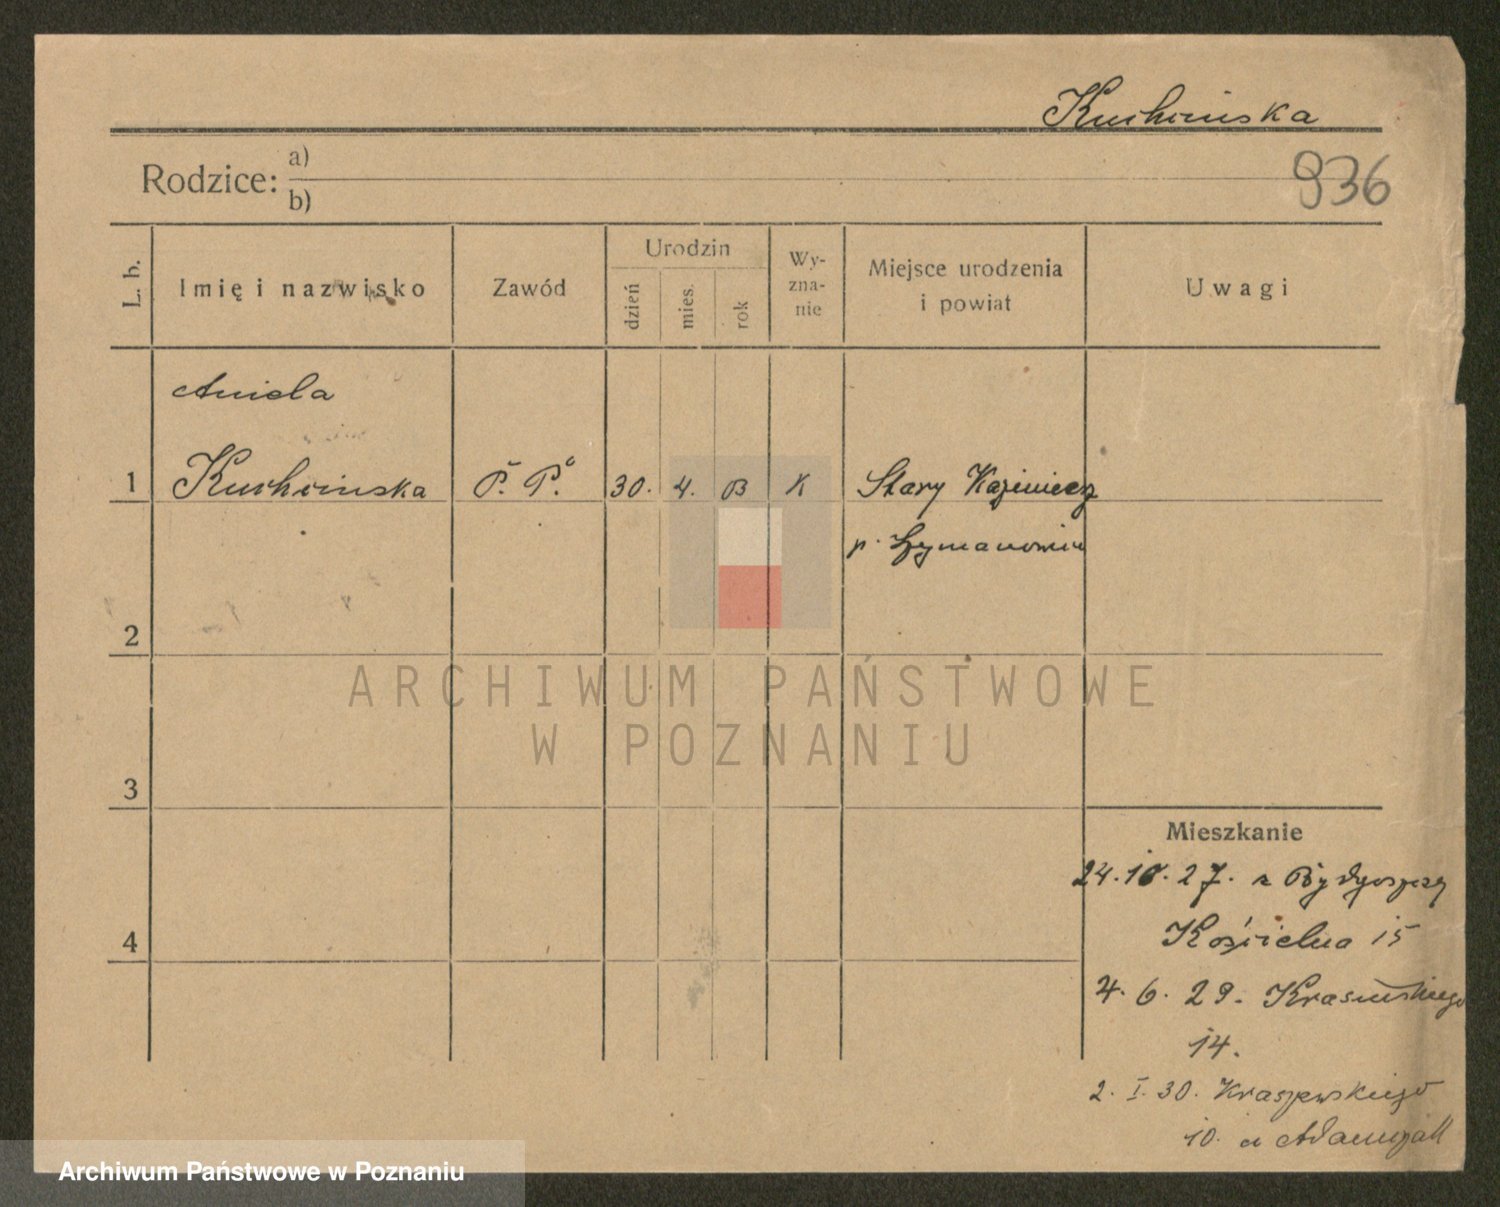 Kuchcińska
936
Rodzice: a)
b)
L. b.
Imię i nazwisko
Zawód
Urodzin
dzień
mies.
rok
Wy-
zna-
nie
Miejsce urodzenia
i powiat
Uwagi
Aniela
1 Kuchcińska P. P. 30. 4. K Stary
p.
2
ARCHIWUM PAŃSTWOWE
W POZNANIU
3
Mieszkanie
24.10.27. z Bydgoszczy
4
Kościelna 15
4. 6. 29. Krasińskiego
14.
2. I. 30. Kraszewskiego
10. a Adamczak
Archiwum Państwowe w Poznaniu